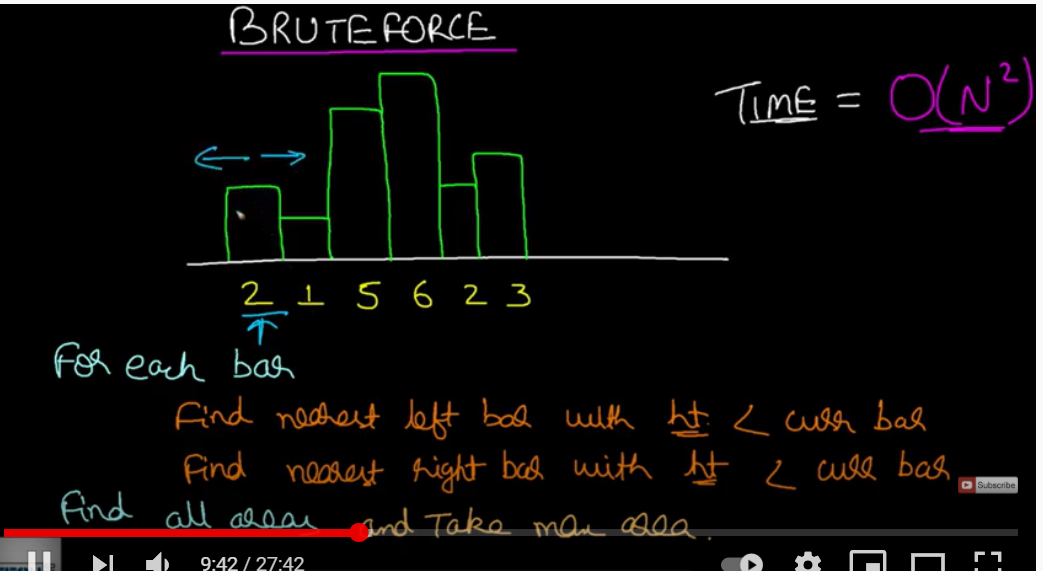 BRUTEFORCE
TIME = O(N²)
2 1 5 6 2 3
For each bar
Find nearest left bar with ht. < curr bar
Find nearest right bar with ht < curr bar
Subscribe
Find all areas and Take max area.
9:42 / 27:42